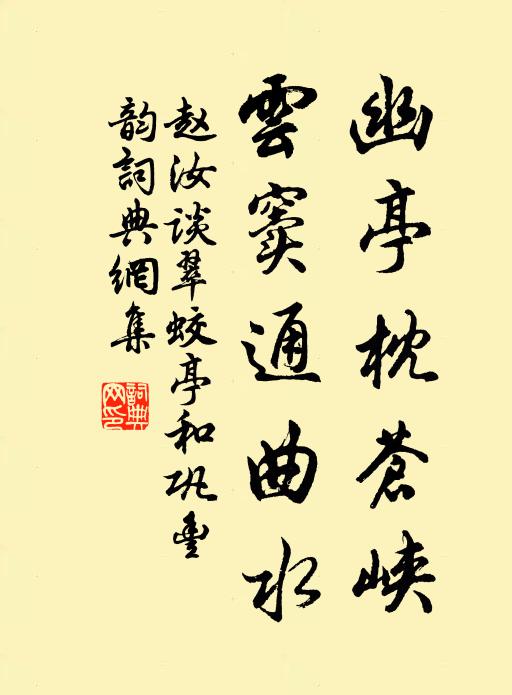 幽亭枕蒼峽
雲竇通曲水
赵汝谈翠蛟亭和巩豊
韵詞典網集
詞典
网印